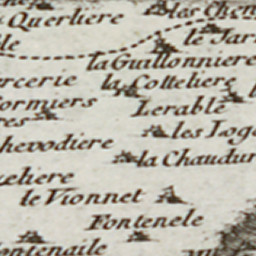 Querliere les Chen
le Jar
la Guillonniere
rcerie la Cotteliere
ormiers Lerable
res les Loge
hevodiere
la Chaudur
eliere
le Vionnet
Fontenele
ontenaile